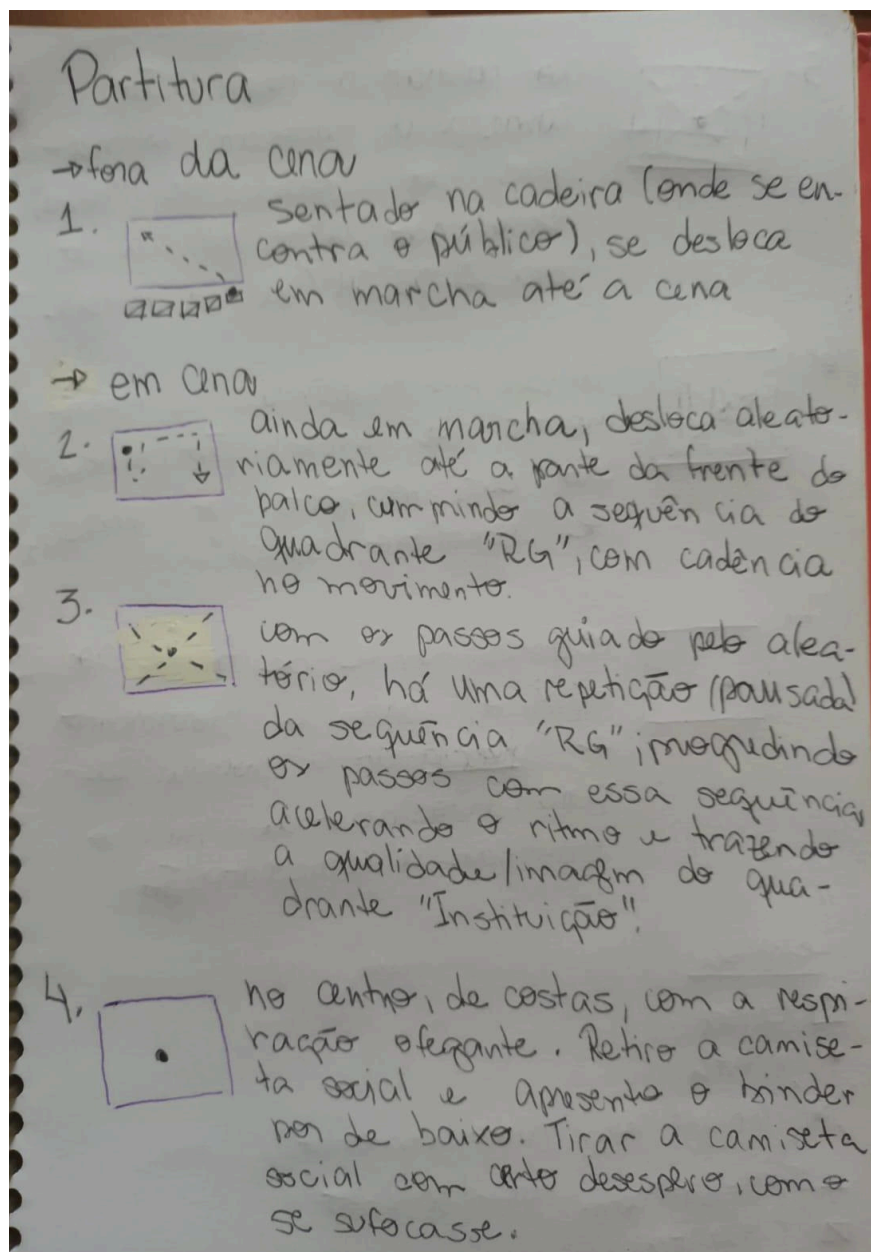 Partitura
→ fora da cena
1. sentado na cadeira (onde se en-
contra o público), se desloca
em marcha até a cena
→ em cena
2. ainda em marcha, desloca aleato-
riamente até a parte da frente do
palco, cumprindo a sequência do
quadrante "RG", com cadência
no movimento.
3. com os passos guiado pelo alea-
tório, há uma repetição (pausada)
da sequência "RG"; progredindo
os passos com essa sequência,
acelerando o ritmo e trazendo
a qualidade/imagem do qua-
drante "Instituição".
4. no centro, de costas, com a respi-
ração ofegante. Retiro a camise-
ta social e apresento o binder
por de baixo. Tirar a camiseta
social com certo desespero, como
se sufocasse.